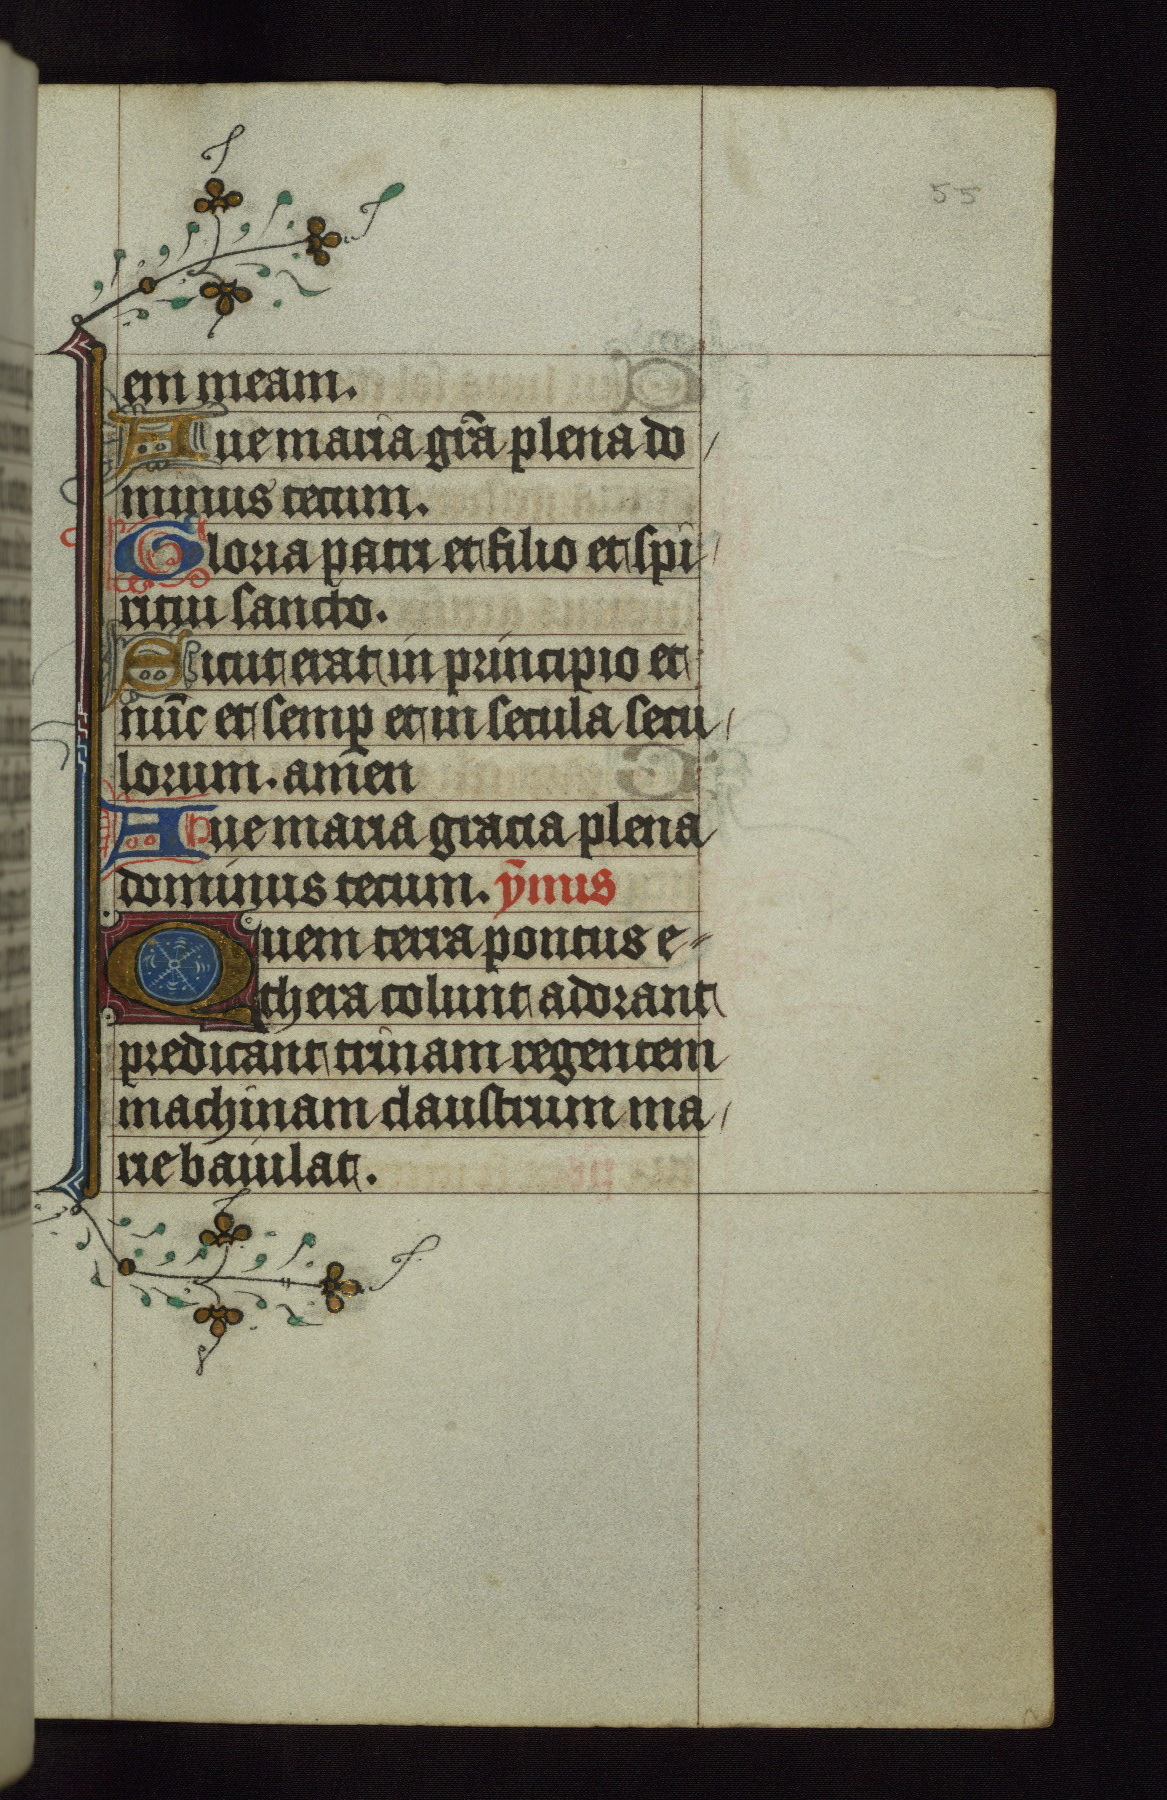 55
em meam.
Aue maria grā plena do
minus tecum.
Gloria patri et filio et spi
ritui sancto.
Sicut erat in principio et
nūc et semp et in secula secu
lorum. amen
Aue maria gracia plena
dominus tecum. ȳmnus
Quem terra pontus e
thera colunt adorant
predicant trinam regentem
machinam claustrum ma
rie baiulat.